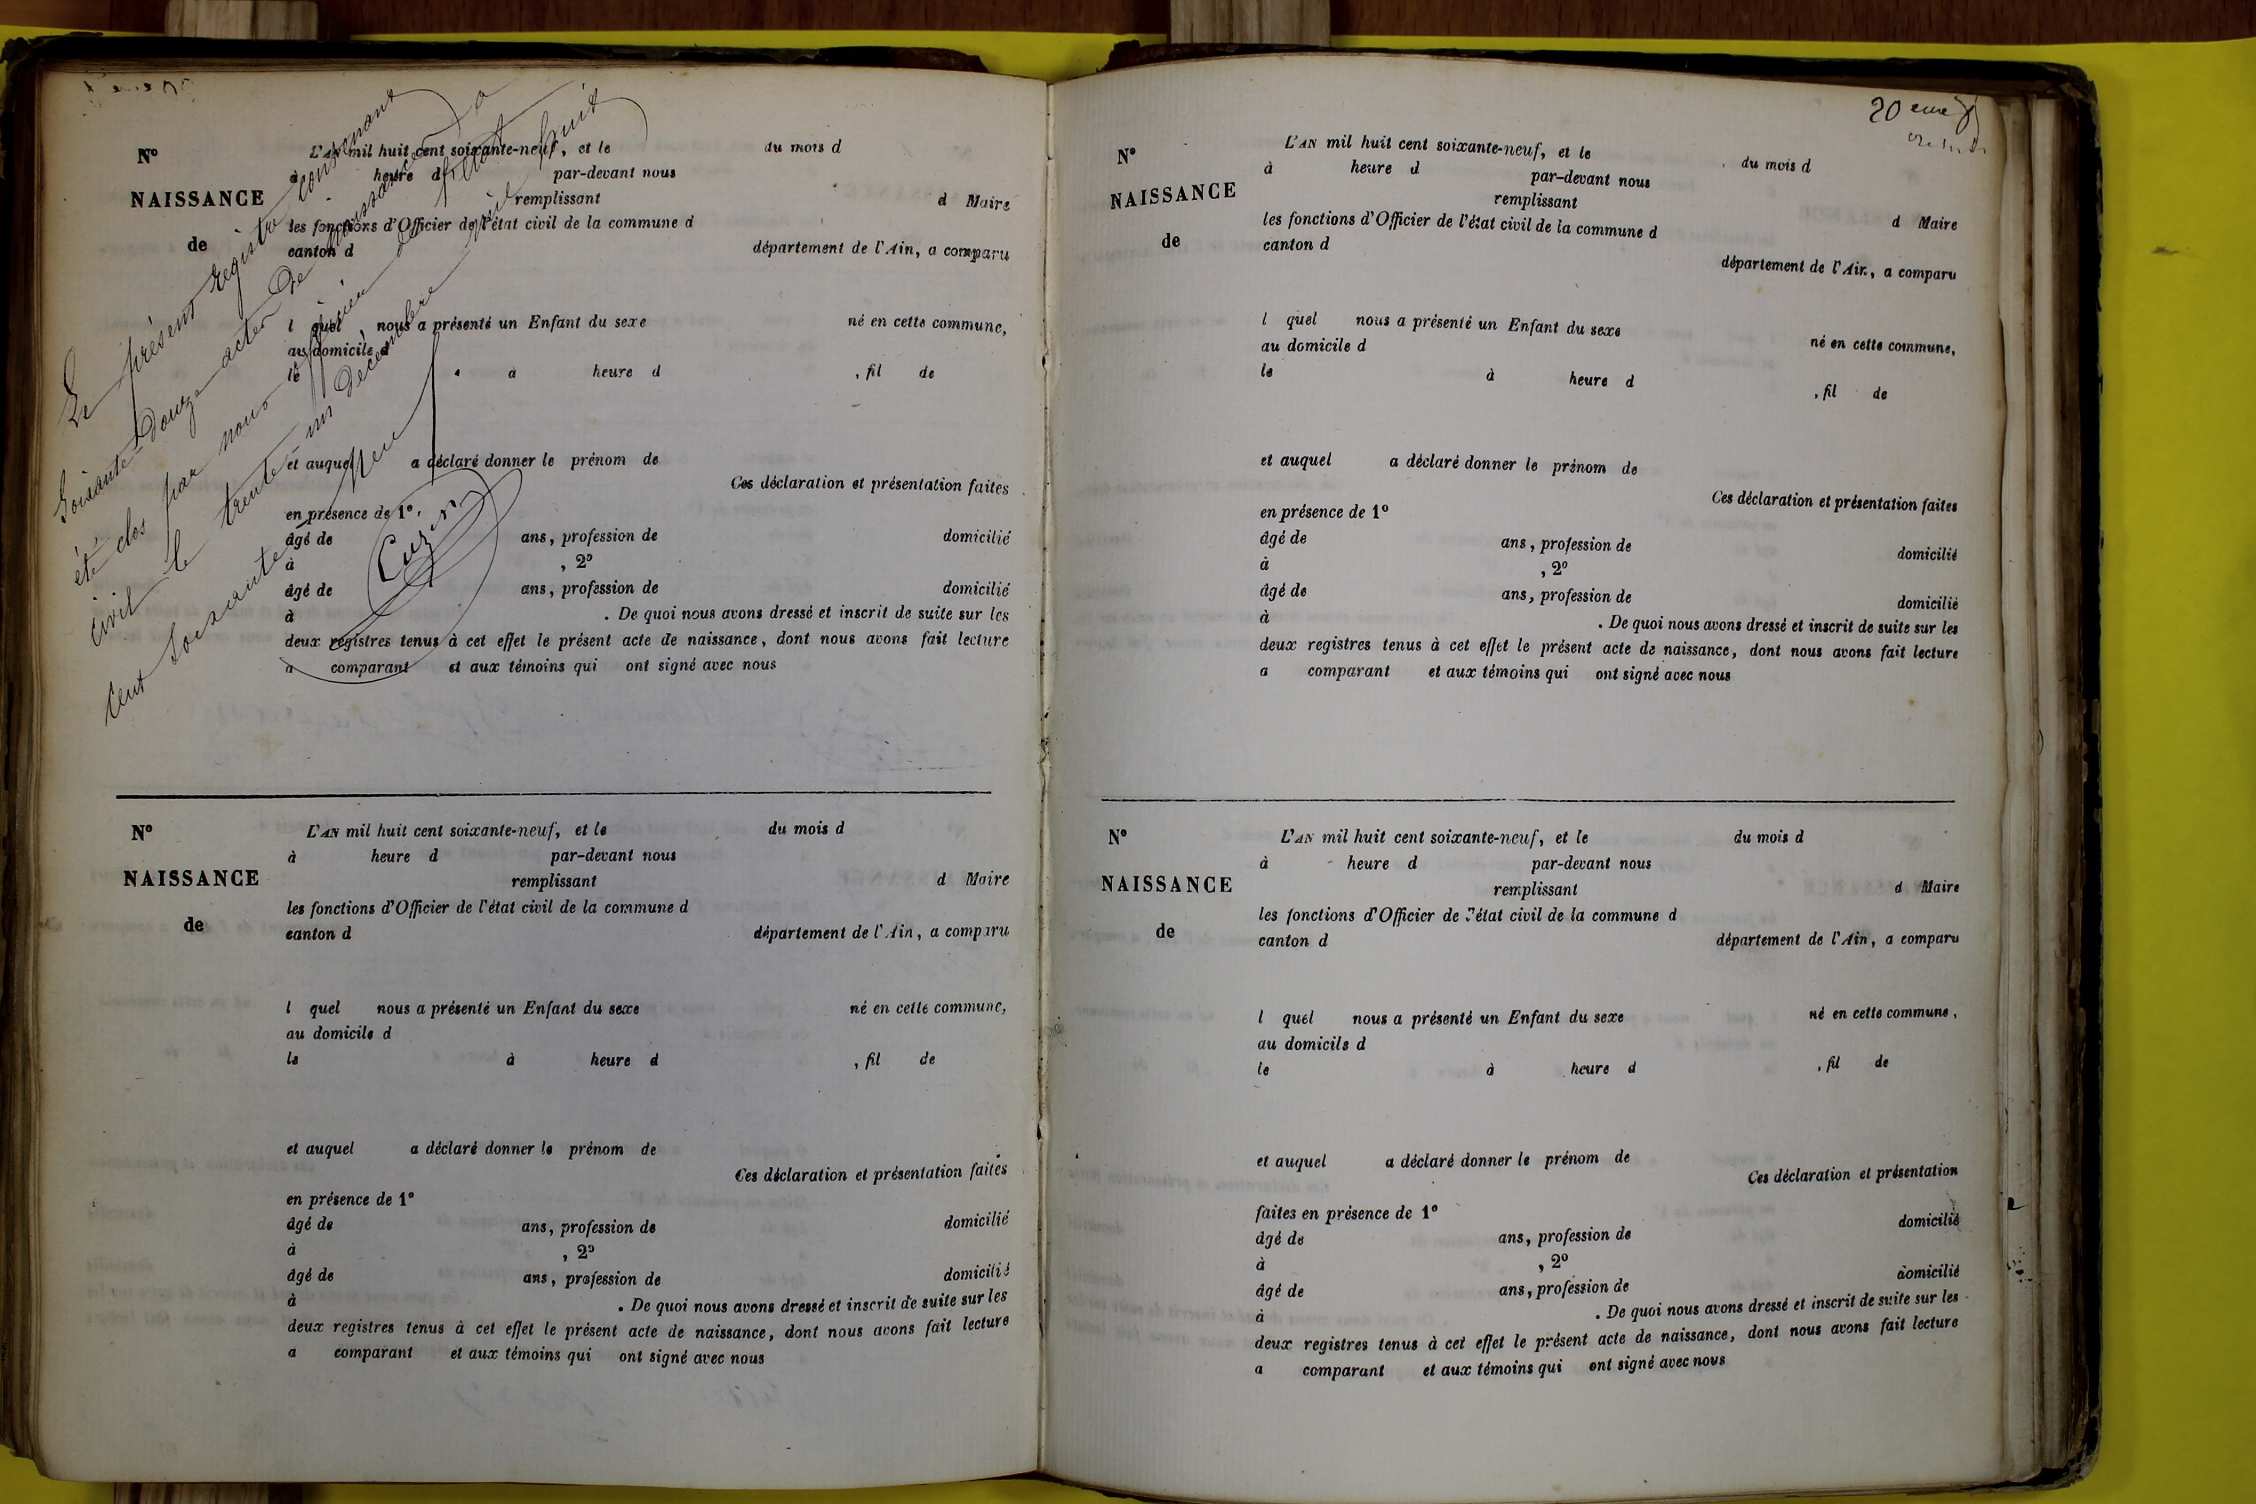 Le présent registre contenant
Soixante-douze actes de naissance a
été clos par nous officier de l'état
civil le trente-un décembre mil huit
cent soixante neuf
Cuzin
N°
NAISSANCE
de
L'AN mil huit cent soixante-neuf, et le du mois d
à heure d par-devant nous
remplissant d Maire
les fonctions d'Officier de l'état civil de la commune d
canton d département de l'Ain, a comparu
l quel nous a présenté un Enfant du sexe né en cette commune,
au domicile d
le à heure d , fil de
et auquel a déclaré donner le prénom de
Ces déclaration et présentation faites
en présence de 1°
âgé de ans, profession de domicilié
à , 2°
âgé de ans, profession de domicilié
à . De quoi nous avons dressé et inscrit de suite sur les
deux registres tenus à cet effet le présent acte de naissance, dont nous avons fait lecture
a comparant et aux témoins qui ont signé avec nous
N°
NAISSANCE
de
L'AN mil huit cent soixante-neuf, et le du mois d
à heure d par-devant nous
remplissant d Maire
les fonctions d'Officier de l'état civil de la commune d
canton d département de l'Ain, a comparu
l quel nous a présenté un Enfant du sexe né en cette commune,
au domicile d
le à heure d , fil de
et auquel a déclaré donner le prénom de
Ces déclaration et présentation faites
en présence de 1°
âgé de ans, profession de domicilié
à , 2°
âgé de ans, profession de domicilié
à . De quoi nous avons dressé et inscrit de suite sur les
deux registres tenus à cet effet le présent acte de naissance, dont nous avons fait lecture
a comparant et aux témoins qui ont signé avec nous
20 eme
N°
NAISSANCE
de
L'AN mil huit cent soixante-neuf, et le du mois d
à heure d par-devant nous
remplissant d Maire
les fonctions d'Officier de l'état civil de la commune d
canton d département de l'Ain, a comparu
l quel nous a présenté un Enfant du sexe né en cette commune,
au domicile d
le à heure d , fil de
et auquel a déclaré donner le prénom de
Ces déclaration et présentation faites
en présence de 1°
âgé de ans, profession de domicilié
à , 2°
âgé de ans, profession de domicilié
à . De quoi nous avons dressé et inscrit de suite sur les
deux registres tenus à cet effet le présent acte de naissance, dont nous avons fait lecture
a comparant et aux témoins qui ont signé avec nous
N°
NAISSANCE
de
L'AN mil huit cent soixante-neuf, et le du mois d
à heure d par-devant nous
remplissant d Maire
les fonctions d'Officier de l'état civil de la commune d
canton d département de l'Ain, a comparu
l quel nous a présenté un Enfant du sexe né en cette commune,
au domicile d
le à heure d , fil de
et auquel a déclaré donner le prénom de
Ces déclaration et présentation
faites en présence de 1°
âgé de ans, profession de domicilié
à , 2°
âgé de ans, profession de domicilié
à . De quoi nous avons dressé et inscrit de suite sur les
deux registres tenus à cet effet le présent acte de naissance, dont nous avons fait lecture
a comparant et aux témoins qui ont signé avec nous